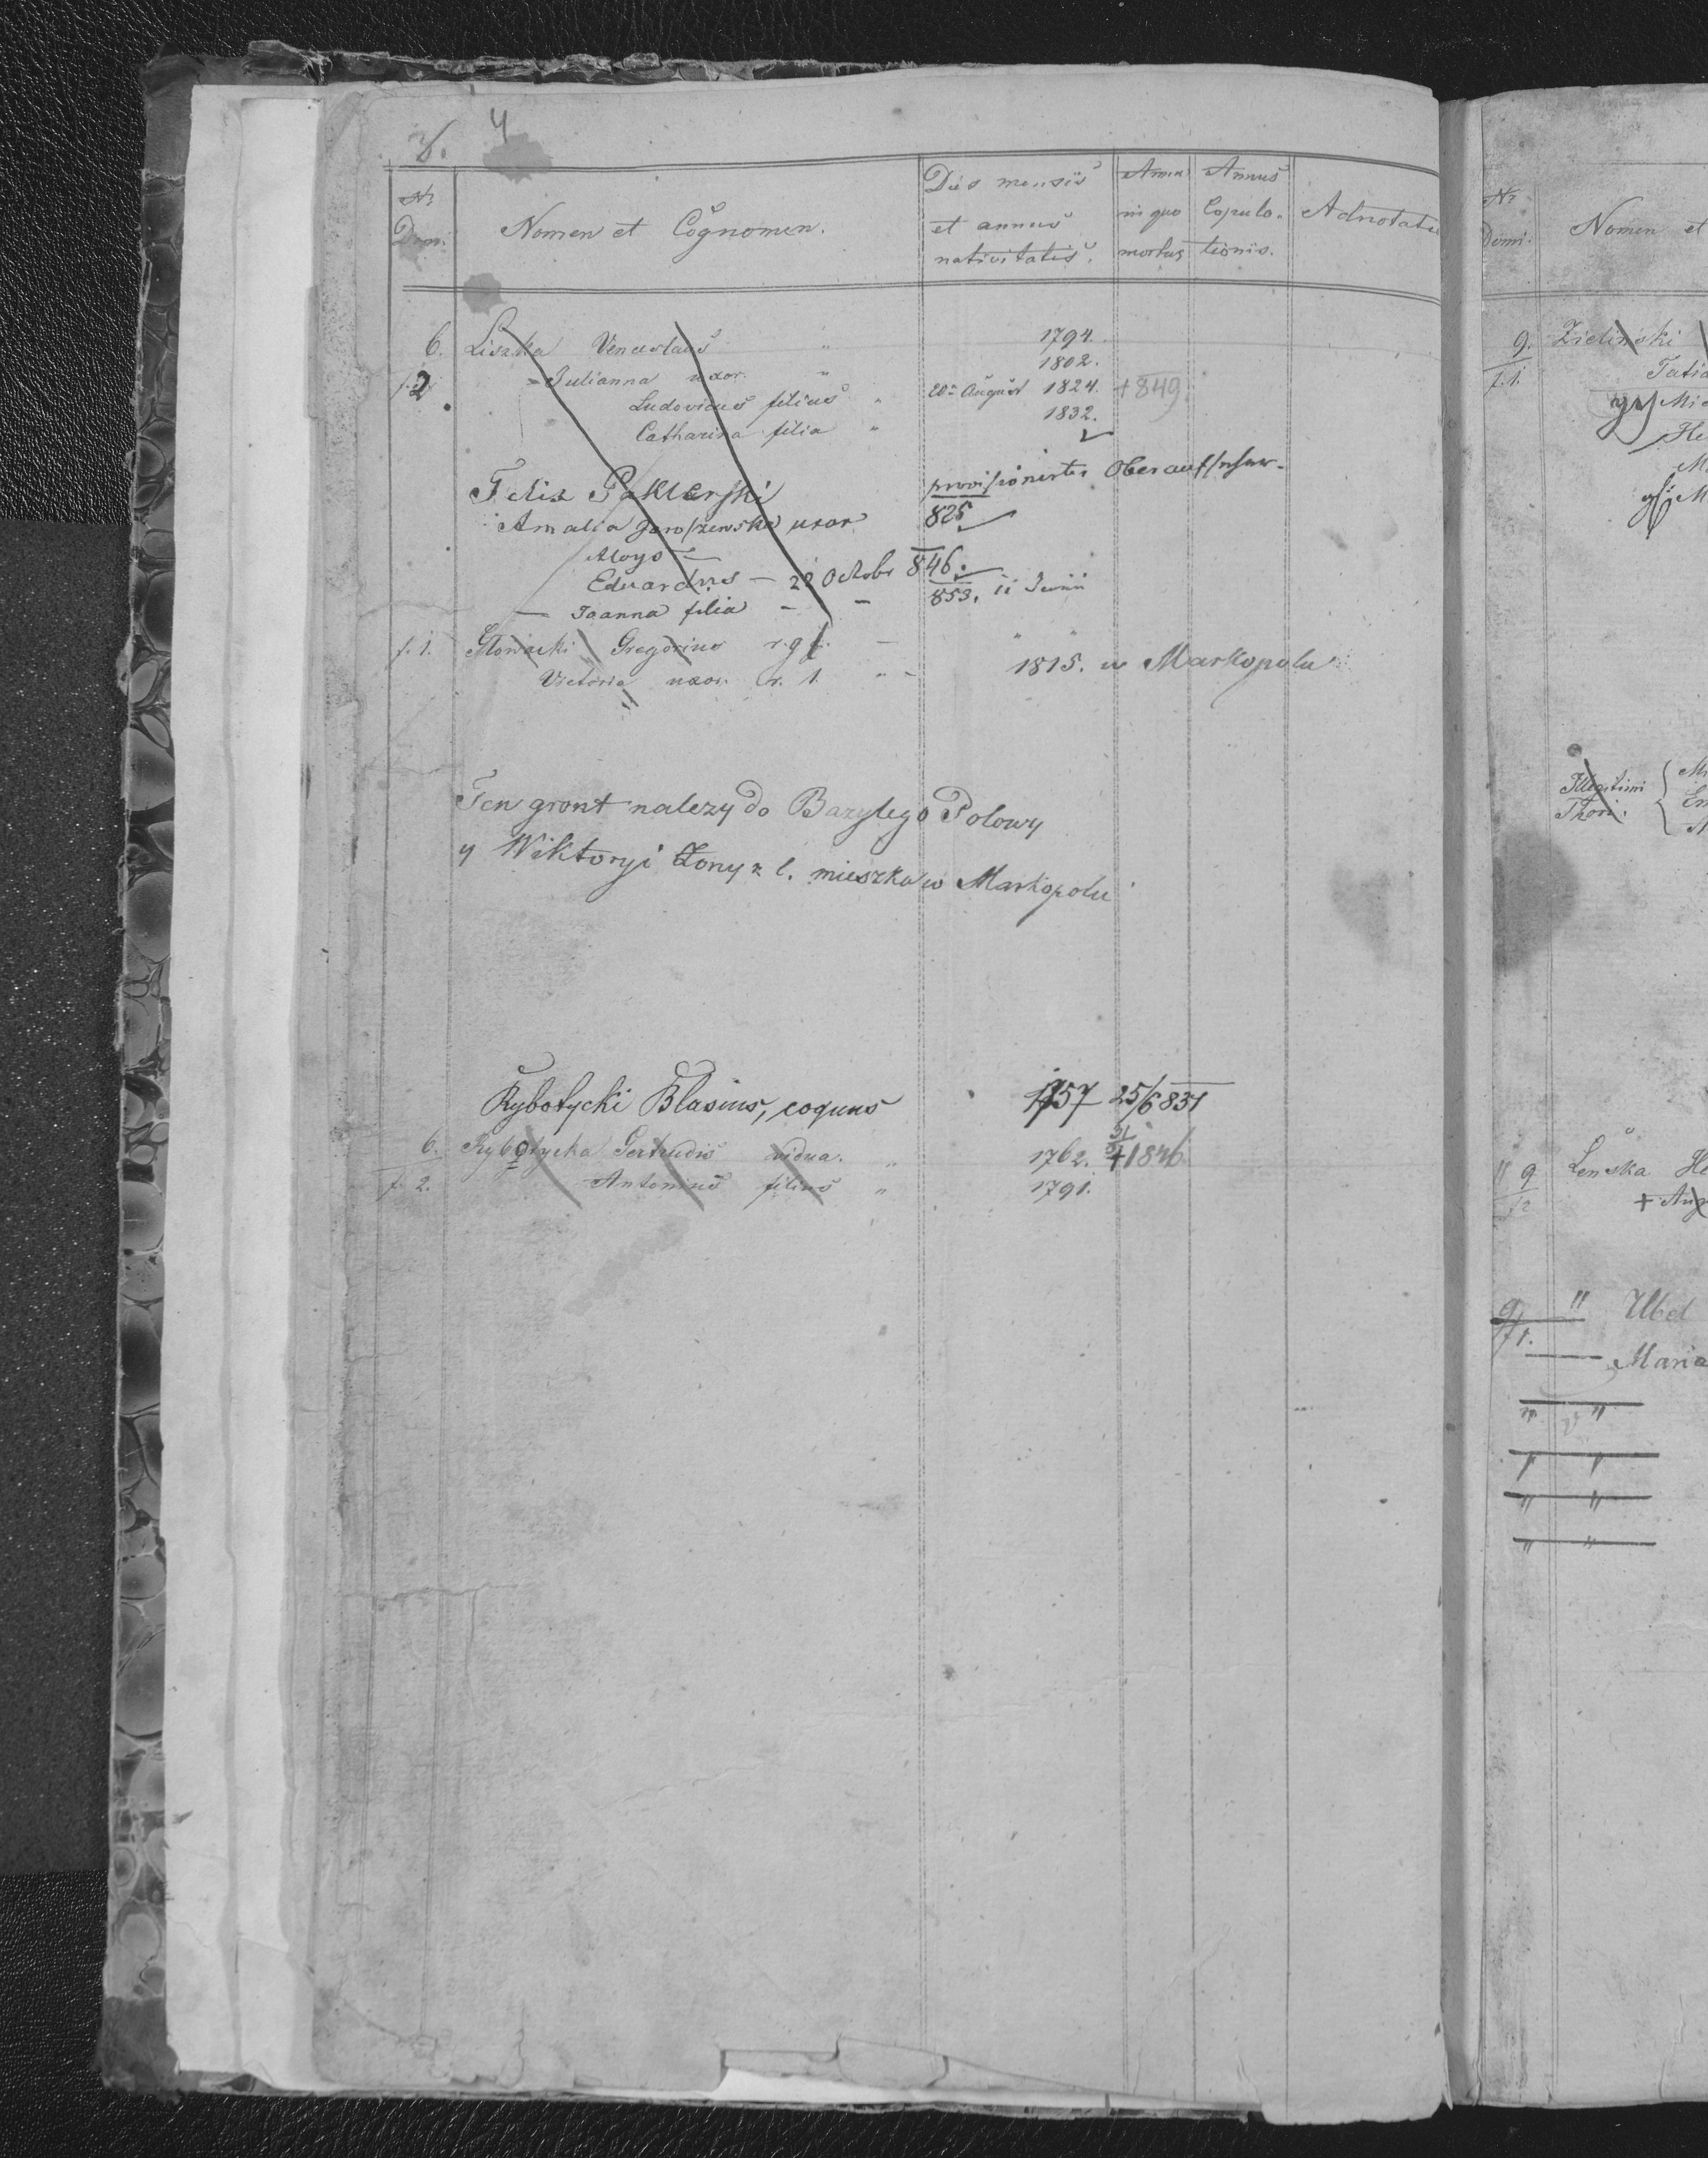 6. 4
Nr Dom. Nomen et Cognomen. Dies mensis et annus nativitatis. Annus in quo mortuus Annus Copulationis. Adnotata
6. Liszka Venceslaus " 1794.
f. 2 Julianna uxor. " 1802.
Ludovicus filius " 20a August 1824. +849
Catharina filia " 1832.
Felix provisionirter Oberaufseher
Amalia uxor 825
Aloys
Eduardus — 28 Octobr 846.
— Joanna filia - - 853. 11 Junii
f. 1. Głowacki Gregorius r. g — " "
Victoria uxor. r. l. " - 1815. w Markopolu
Ten gront nalezy do Bazylego Polowy
y Wiktoryi Zony r. l. mieszka w Markopolu
Rybotycki Blasius, coquus 1757 25/6 831
6. Rybotycka Gertrudis vidua. " 1762. +1846
f. 2. Antonius filius " 1791.
Nr Domi. Nomen et
9. Zieliński
f. 1. Tatia
Illegitimi
Thori.
9 Lenska He
f2 + Aug
9 " Ubel
f1. Maria